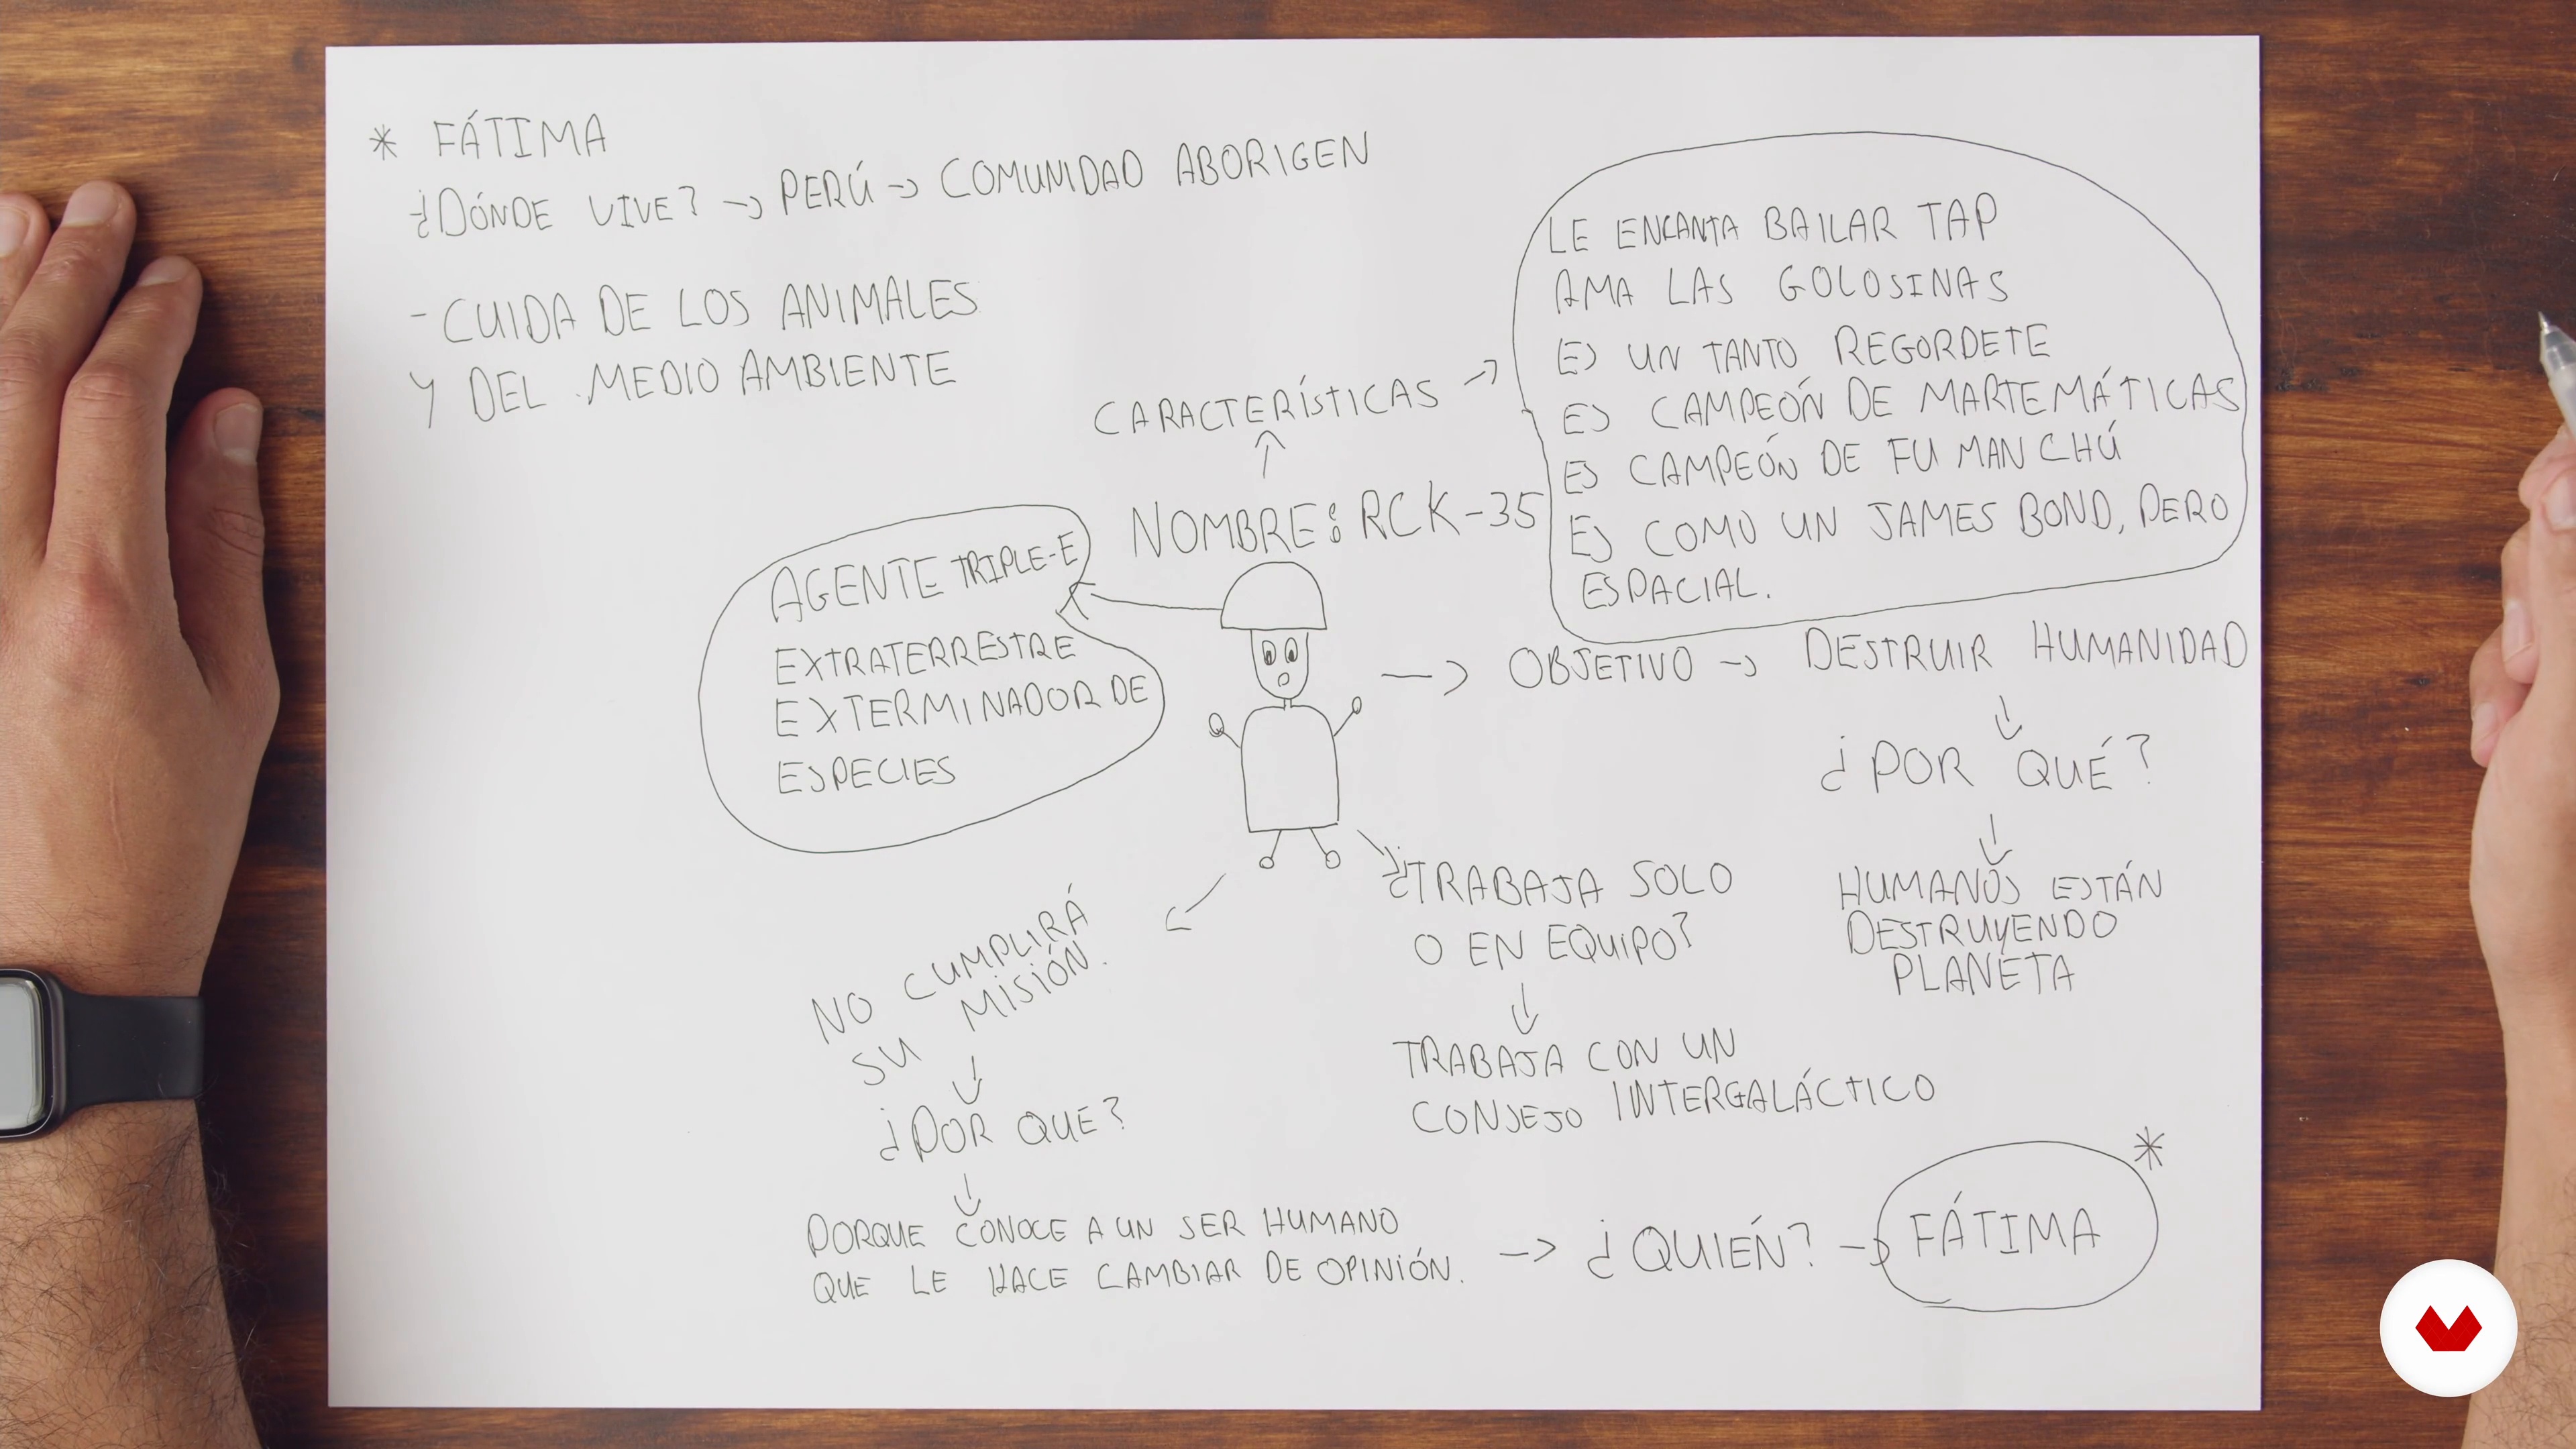 * FÁTIMA
¿DÓNDE VIVE? → PERÚ → COMUNIDAD ABORIGEN
- CUIDA DE LOS ANIMALES
Y DEL MEDIO AMBIENTE
CARACTERÍSTICAS →
LE ENCANTA BAILAR TAP
AMA LAS GOLOSINAS
ES UN TANTO REGORDETE
ES CAMPEÓN DE MARTEMÁTICAS
ES CAMPEÓN DE FU MAN CHÚ
ES COMO UN JAMES BOND, PERO
ESPACIAL.
NOMBRE: RCK-35
AGENTE TRIPLE-E
EXTRATERRESTRE
EXTERMINADOR DE
ESPECIES
→ OBJETIVO → DESTRUIR HUMANIDAD
¿POR QUÉ?
HUMANOS ESTÁN
DESTRUYENDO
PLANETA
¿TRABAJA SOLO
O EN EQUIPO?
TRABAJA CON UN
CONSEJO INTERGALÁCTICO
NO CUMPLIRÁ
SU MISIÓN.
¿POR QUE?
PORQUE CONOCE A UN SER HUMANO
QUE LE HACE CAMBIAR DE OPINIÓN.
→ ¿QUIÉN? → FÁTIMA *